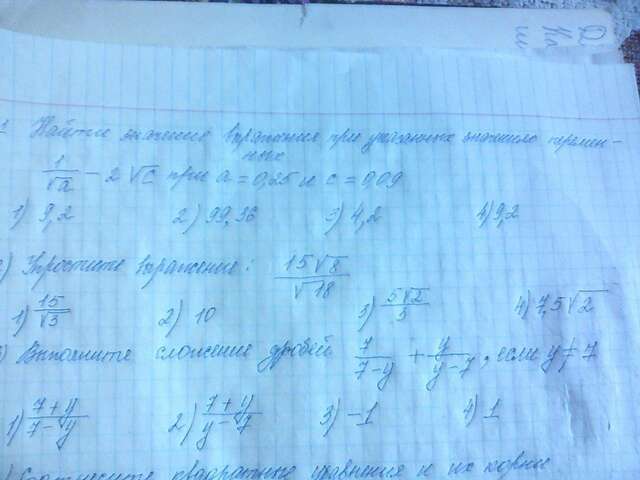 Найдите значение выражения при указанных значениях перемен-
ных
1/√a − 2√c при a = 0,25 и c = 0,09
1) 9,2 2) 99,96 3) 4,2 4) 9,2
2) Упростите выражение: 15√8/√18
1) 15/√3 2) 10 3) 5√2/3 4) 7,5√2
3) Выполните сложение дробей 7/7−y + y/y−7, если y≠7
1) 7+y/7−y 2) 7+y/y−7 3) −1 4) 1
Соотнесите квадратные уравнения и их корни